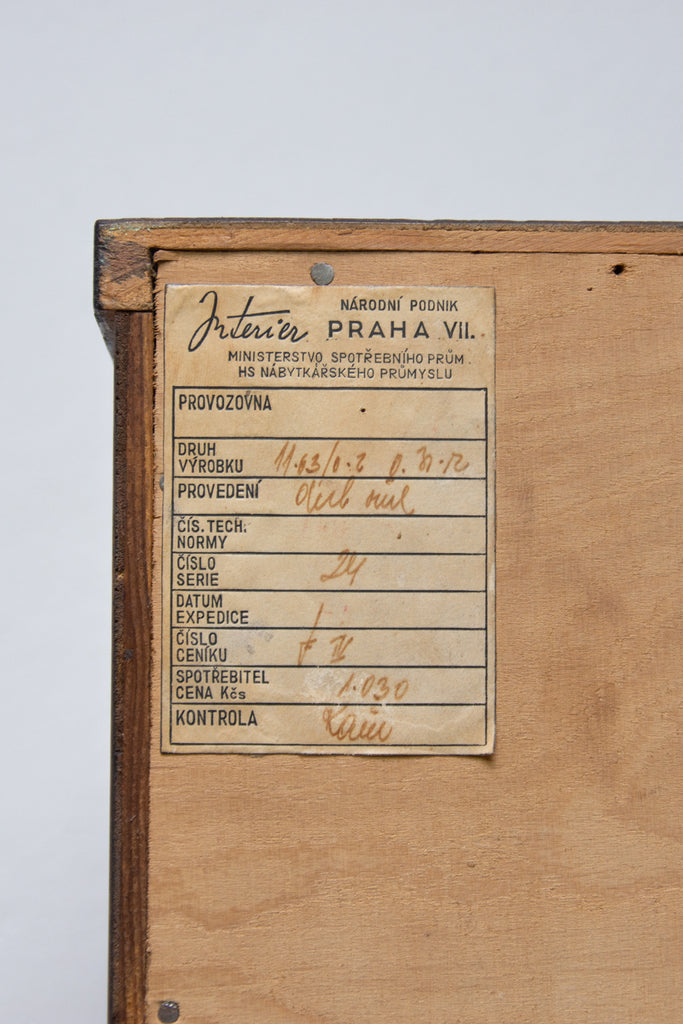 Interier NÁRODNÍ PODNIK
PRAHA VII.
MINISTERSTVO SPOTŘEBNÍHO PRŮM.
HS NÁBYTKÁŘSKÉHO PRŮMYSLU
PROVOZOVNA
DRUH
VÝROBKU
PROVEDENÍ
ČÍS. TECH.
NORMY
ČÍSLO
SERIE 24
DATUM
EXPEDICE
ČÍSLO
CENÍKU IV
SPOTŘEBITEL
CENA Kčs 1.030
KONTROLA